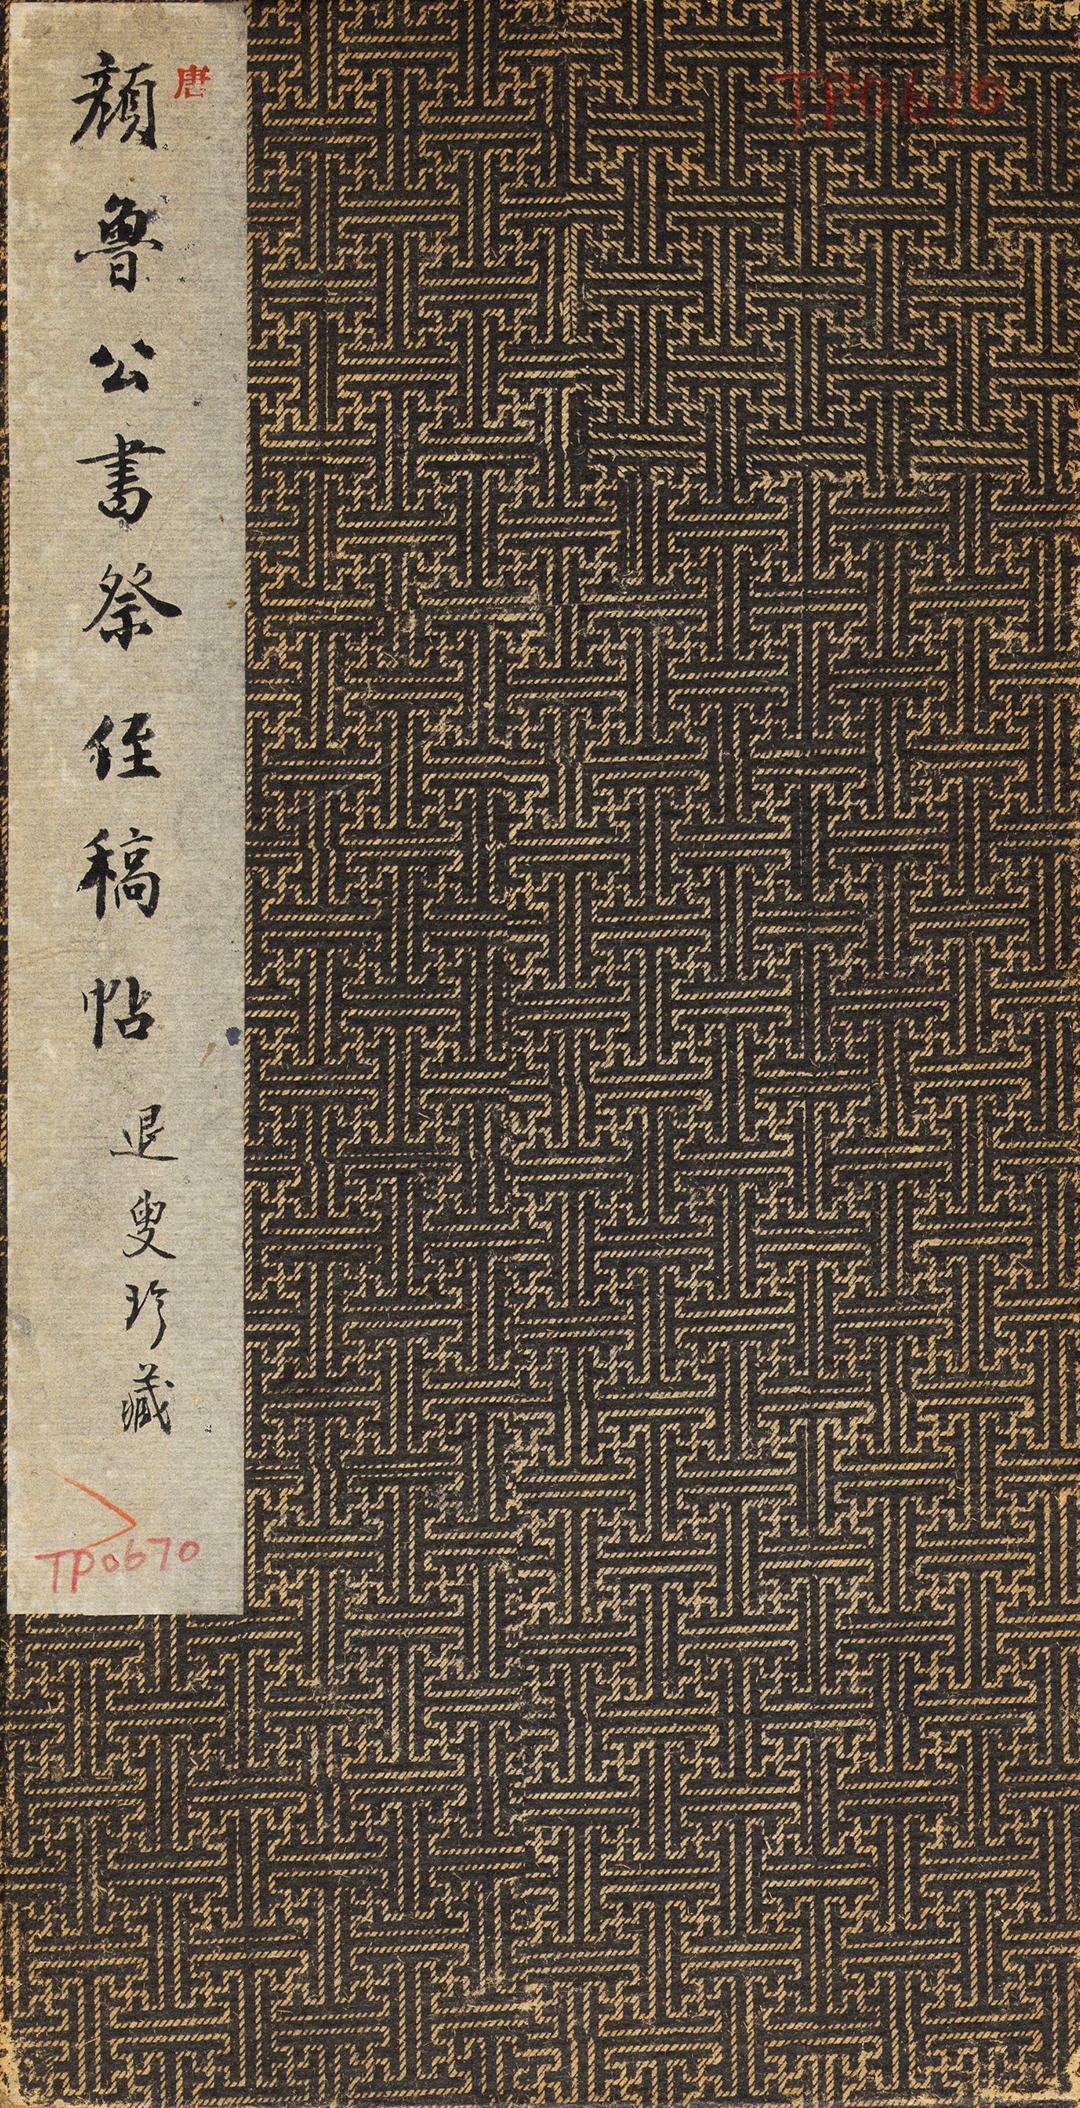 唐
顏魯公書祭侄稿帖
退叟珍藏
TP0670
TP0670